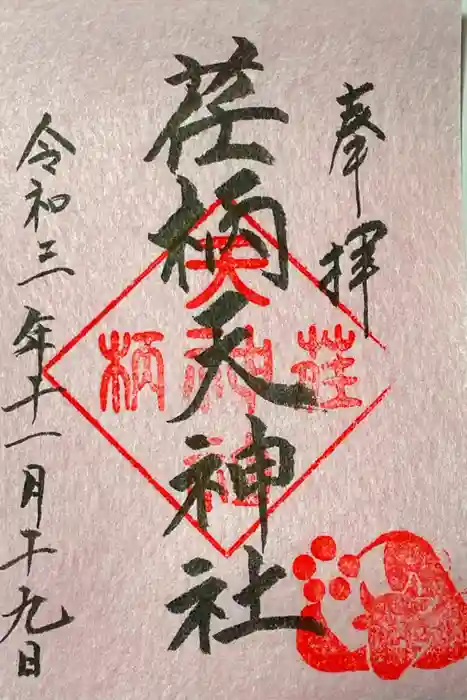 奉拝
荏柄天神社
令和三年十一月十九日
荏
柄
天
神
社